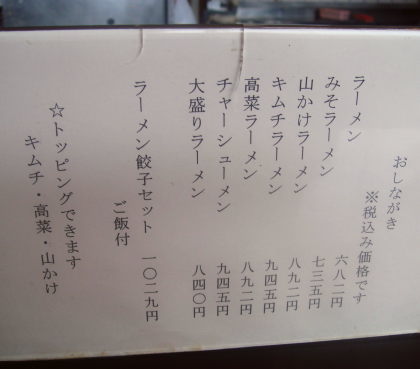 おしながき
※税込み価格です
ラーメン 六八二円
みそラーメン 七三五円
山かけラーメン 八九二円
キムチラーメン 九四五円
高菜ラーメン 八九二円
チャーシューメン 九四五円
大盛りラーメン 八四〇円
ラーメン餃子セット 一〇二九円
ご飯付
☆トッピングできます
キムチ・高菜・山かけ